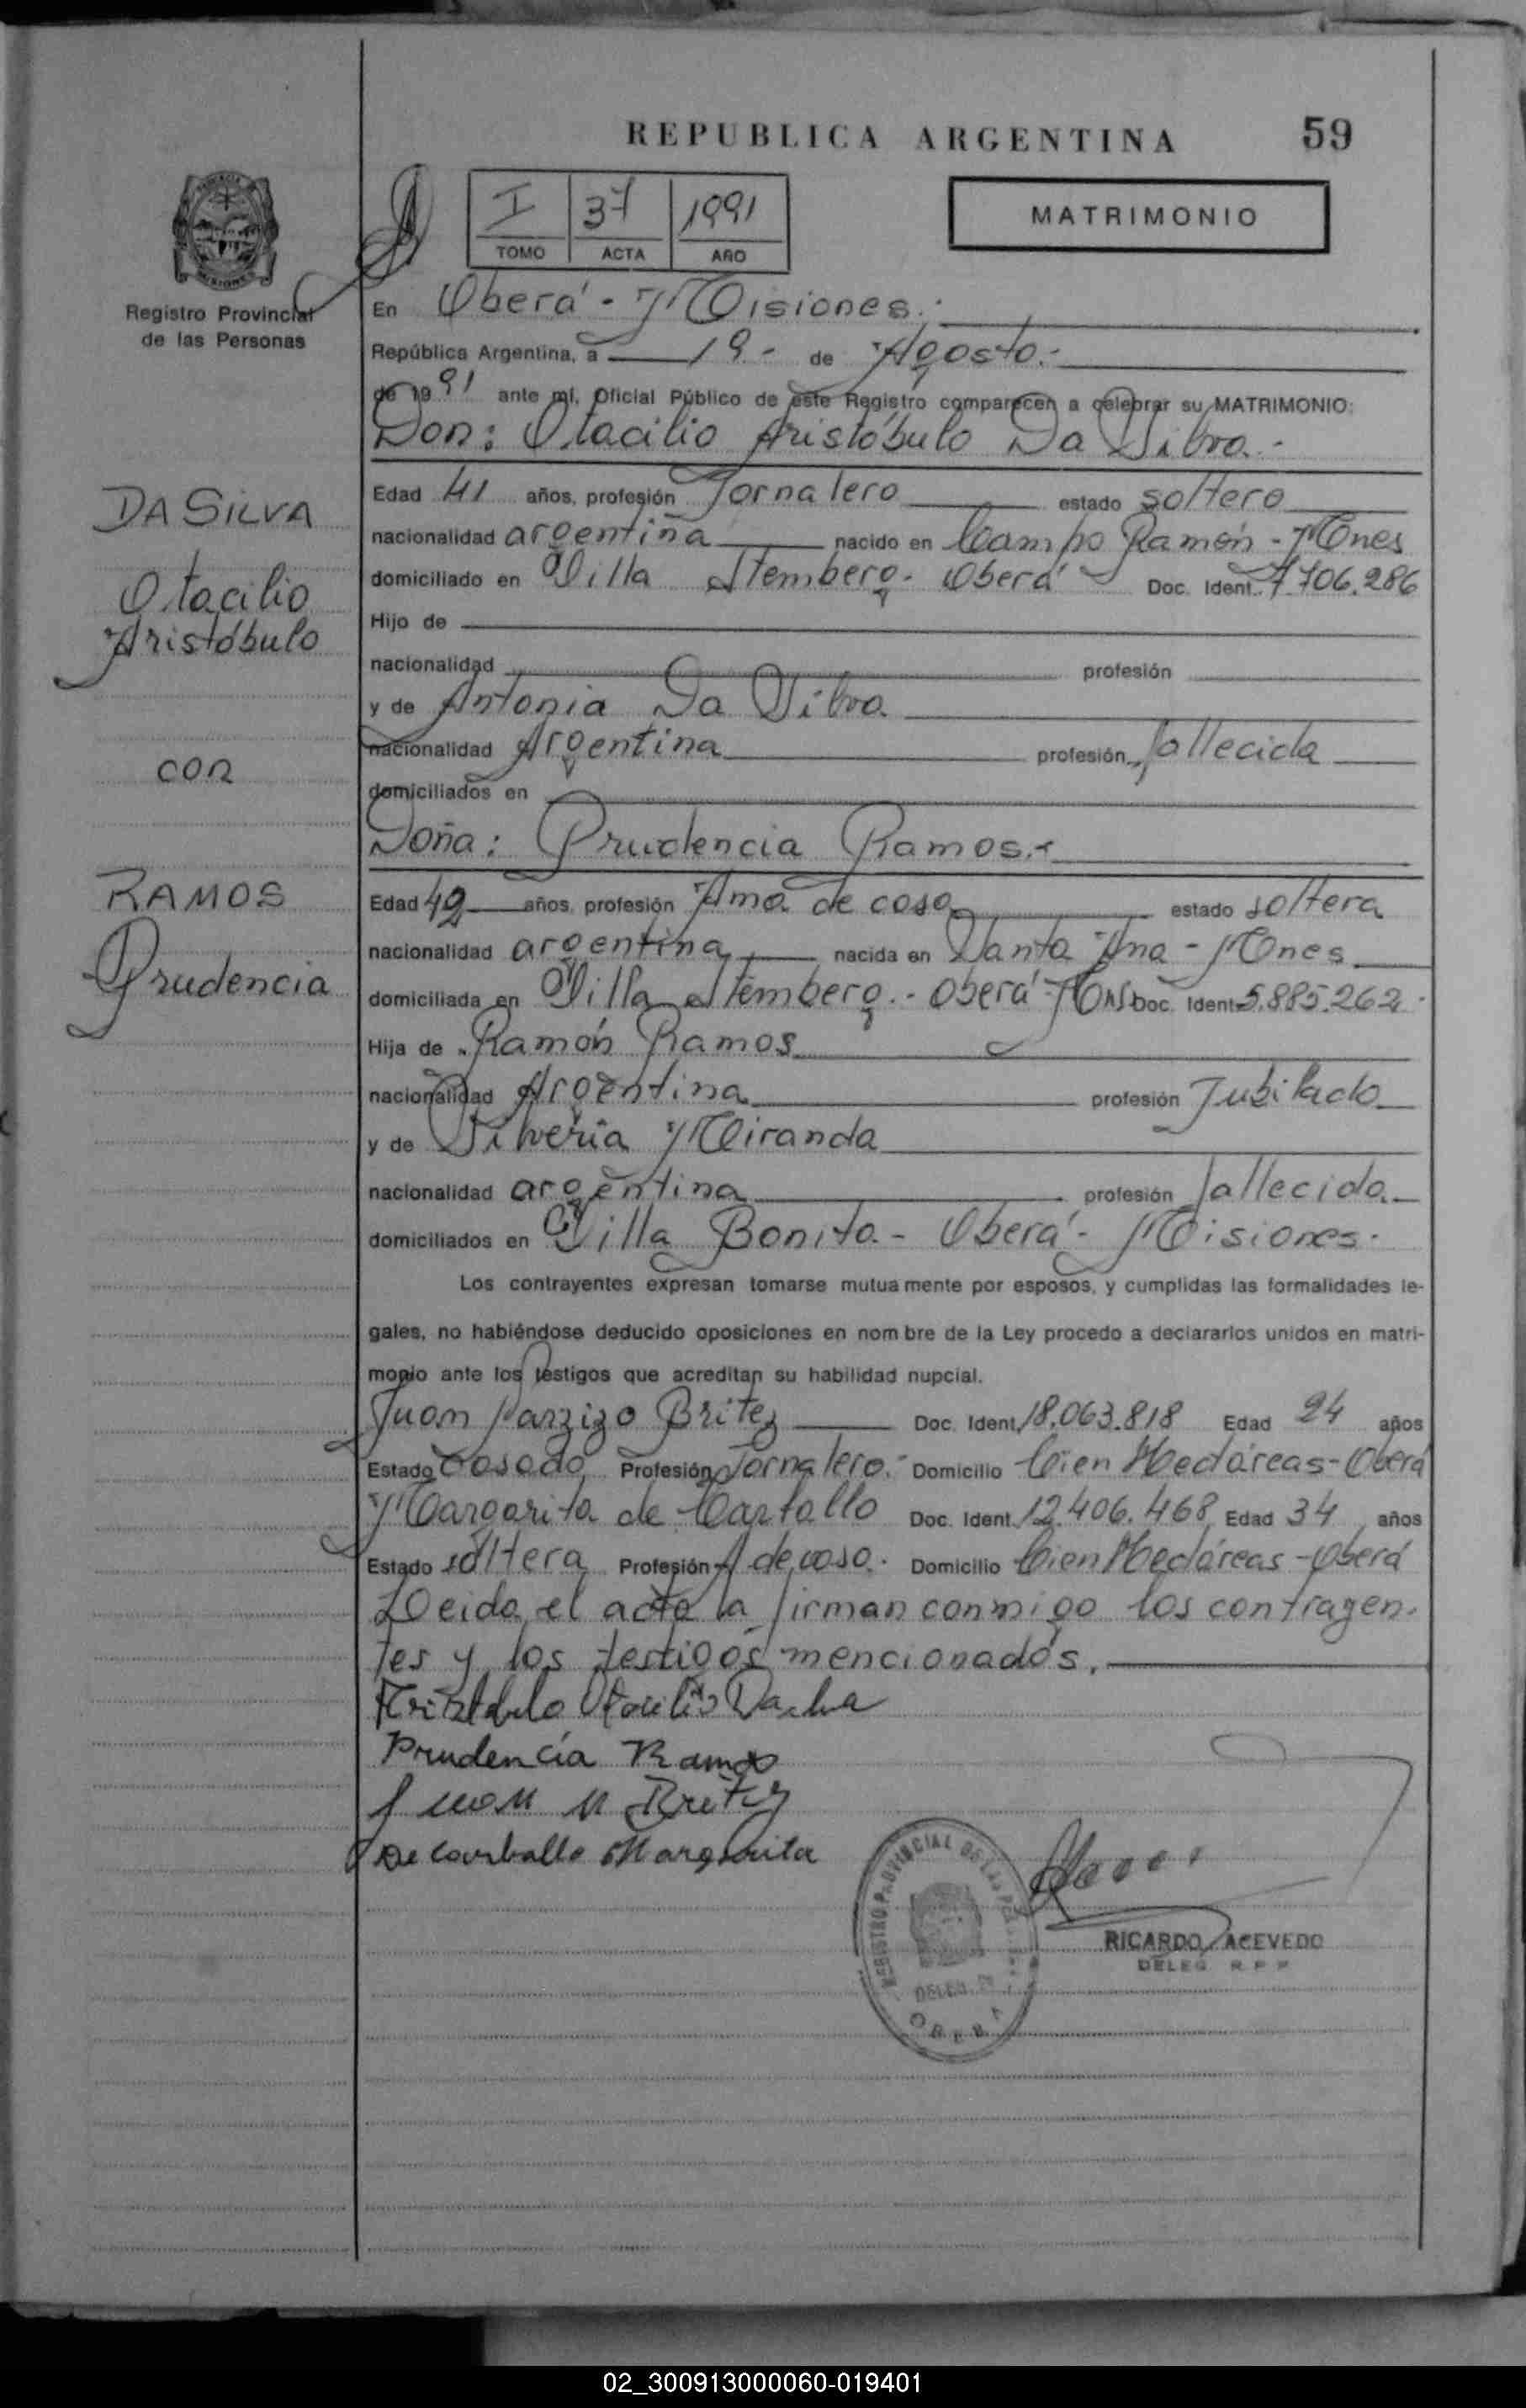 REPUBLICA ARGENTINA 59
I 37 1991
TOMO ACTA AÑO
MATRIMONIO
MISIONES
Registro Provincial
de las Personas
En Oberá - Misiones.
República Argentina, a 19 - de Agosto.-
de 1991 ante mí, Oficial Público de este Registro comparecen a celebrar su MATRIMONIO:
Don: Otacilio Aristóbulo Da Silva.-
DA SILVA
Otacilio
Aristóbulo
con
RAMOS
Prudencia
Edad 41 años, profesión Jornalero estado soltero
nacionalidad argentina nacido en Campo Ramón - Mnes
domiciliado en Villa Stemberg - Oberá Doc. Ident. 7.706.286
Hijo de
nacionalidad profesión
y de Antonia Da Silva
nacionalidad Argentina profesión fallecida
domiciliados en
Doña: Prudencia Ramos.-
Edad 42 años, profesión Ama de casa estado soltera
nacionalidad argentina nacida en Santa Ana - Mnes
domiciliada en Villa Stemberg.- Oberá - Mns Doc. Ident. 5.885.262.
Hija de Ramón Ramos
nacionalidad Argentina profesión Jubilado
y de Silveria Miranda
nacionalidad argentina profesión fallecida
domiciliados en Villa Bonita - Oberá - Misiones.
Los contrayentes expresan tomarse mutuamente por esposos, y cumplidas las formalidades le-
gales, no habiéndose deducido oposiciones en nombre de la Ley procedo a declararlos unidos en matri-
monio ante los testigos que acreditan su habilidad nupcial.
Juan Britez Doc. Ident. 18.063.818 Edad 24 años
Estado casado Profesión Jornalero.- Domicilio Cien Hectáreas - Oberá
Margarita de Doc. Ident. 12.406.468 Edad 34 años
Estado soltera Profesión A de casa. Domicilio Cien Hectáreas - Oberá
Leida el acta la firman conmigo los contrayen-
tes y los testigos mencionados.
Prudencia Ramos
Juan Britez
De Carballo Margarita
REGISTRO PROVINCIAL DE LAS
OBERA
RICARDO ACEVEDO
DELEG R P P
02_300913000060-019401